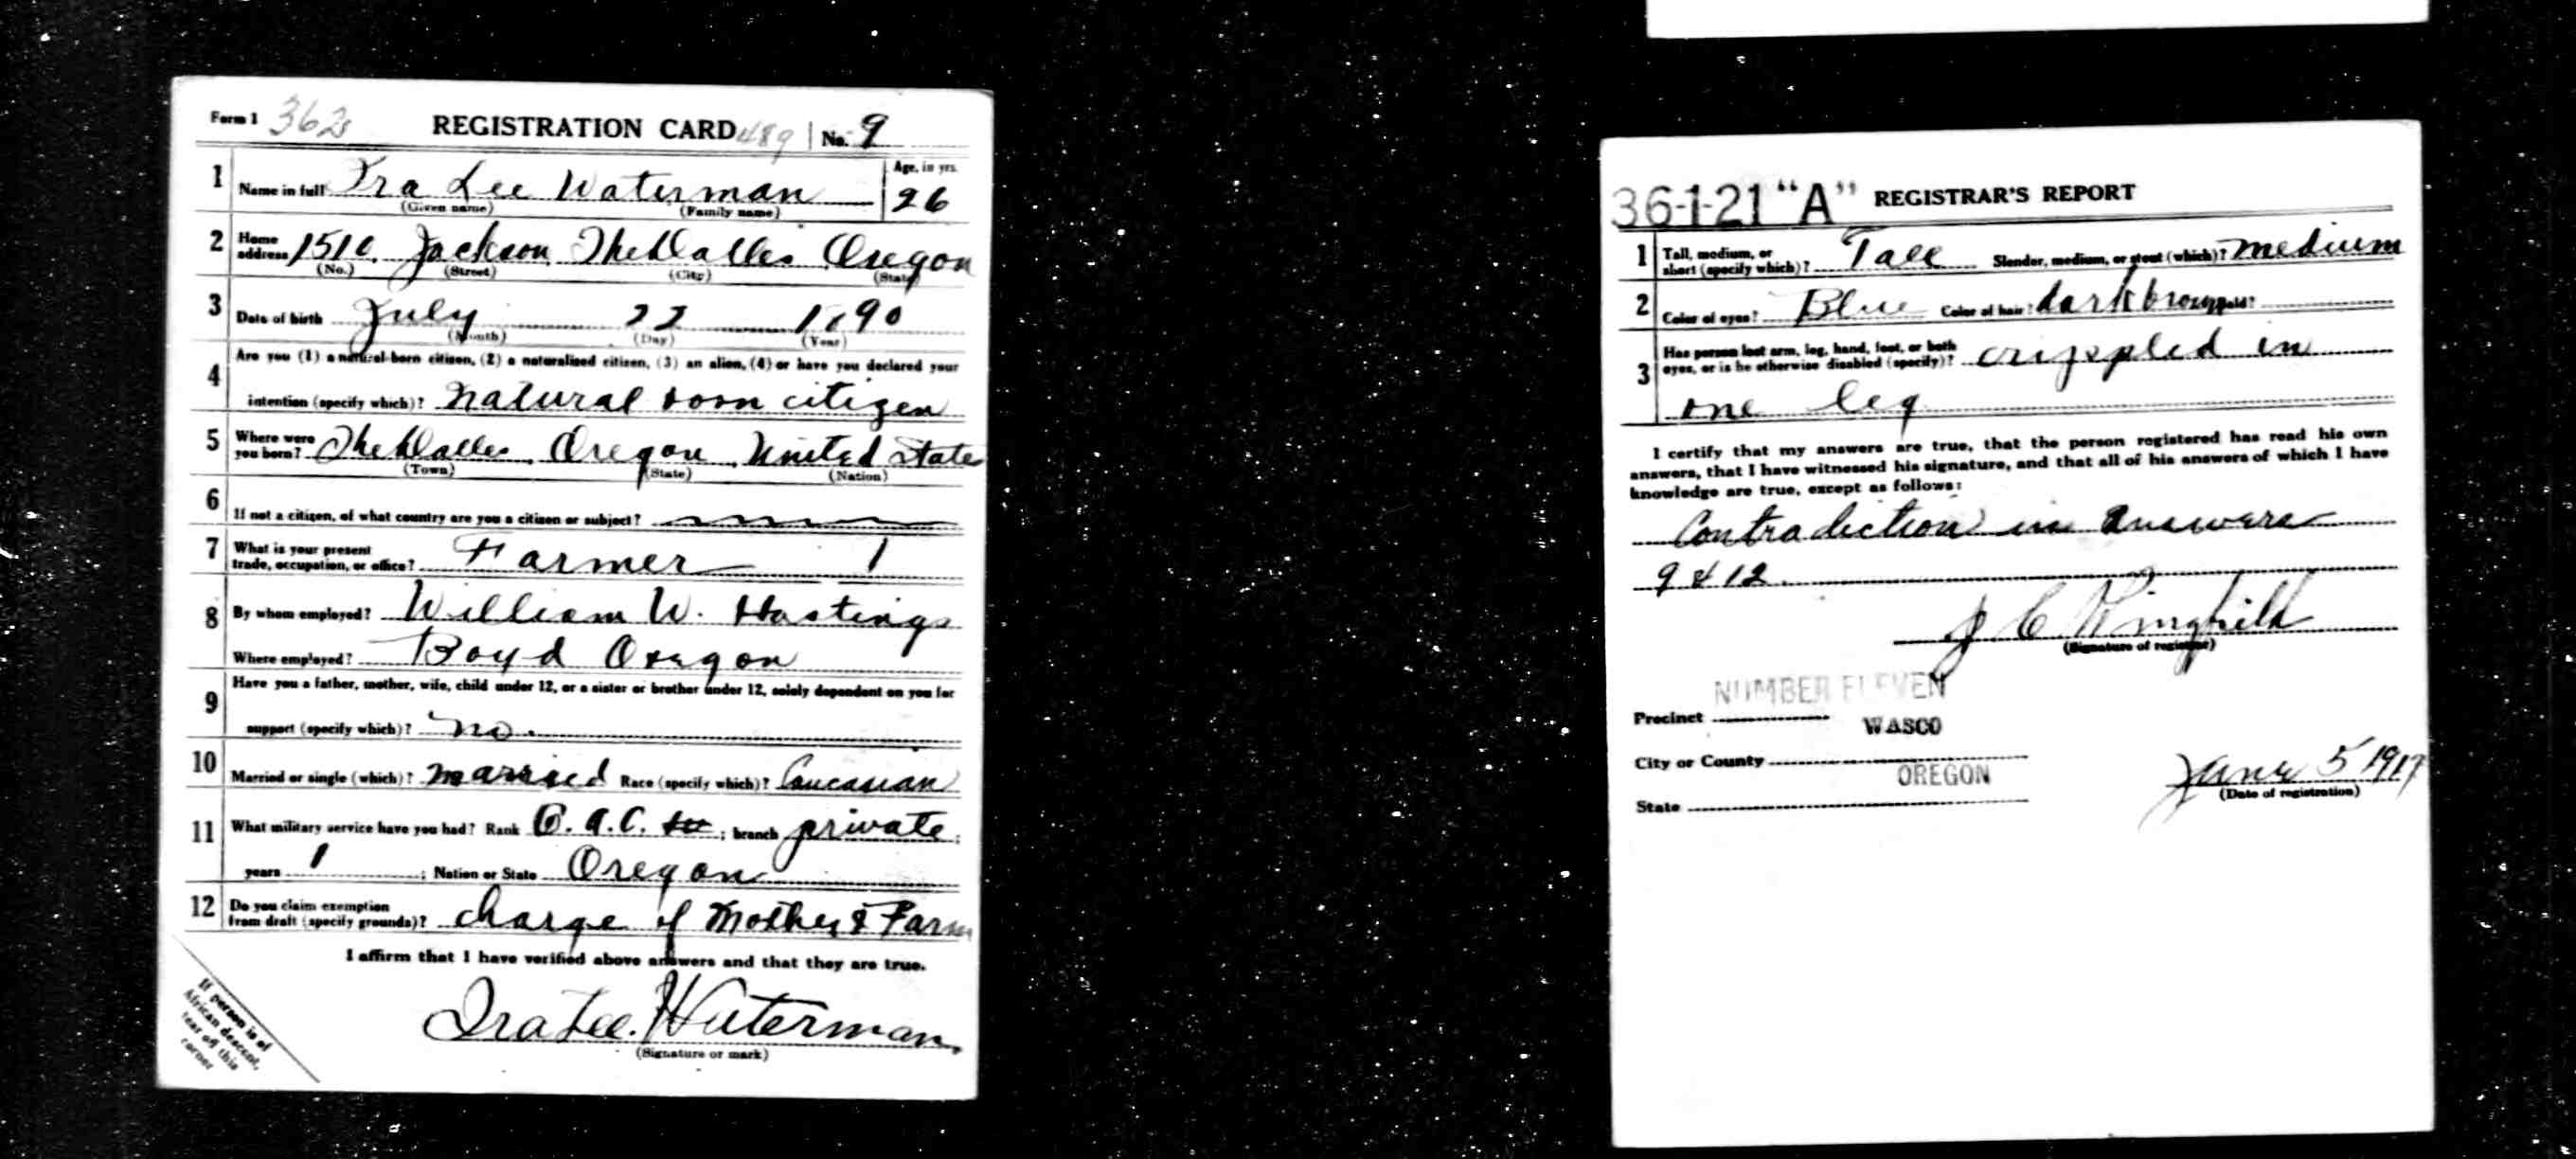 Form 1 362 REGISTRATION CARD 489 No. 9
1 Name in full Ira Lee Waterman Age, in yrs. 26
(Given name) (Family name)
2 Home address 1510. Jackson The Dalles Oregon
(No.) (Street) (City) (State)
3 Date of birth July 22 1890
(Month) (Day) (Year)
4 Are you (1) a natural-born citizen, (2) a naturalized citizen, (3) an alien, (4) or have you declared your
intention (specify which)? natural born citizen
5 Where were you born? The Dalles Oregon United State
(Town) (State) (Nation)
6 If not a citizen, of what country are you a citizen or subject?
7 What is your present trade, occupation, or office? Farmer 1
8 By whom employed? William W. Hastings
Where employed? Boyd Oregon
9 Have you a father, mother, wife, child under 12, or a sister or brother under 12, solely dependent on you for
support (specify which)? no.
10 Married or single (which)? married Race (specify which)? Caucasian
11 What military service have you had? Rank O.A.C. ; branch private ;
years 1 ; Nation or State Oregon
12 Do you claim exemption from draft (specify grounds)? charge of Mother & Farm
I affirm that I have verified above answers and that they are true.
Ira Lee. Waterman
(Signature or mark)
If person is of
African descent,
tear off this
corner
36-1-21 "A" REGISTRAR'S REPORT
1 Tall, medium, or short (specify which)? Tall Slender, medium, or stout (which)? medium
2 Color of eyes? Blue Color of hair? dark brown Bald?
3 Has person lost arm, leg, hand, foot, or both eyes, or is he otherwise disabled (specify)? crippled in
one leg
I certify that my answers are true, that the person registered has read his own
answers, that I have witnessed his signature, and that all of his answers of which I have
knowledge are true, except as follows:
Contradiction in answers
9 & 12
J C
(Signature of registrar)
Precinct NUMBER ELEVEN
City or County WASCO
State OREGON
June 5 1917
(Date of registration)